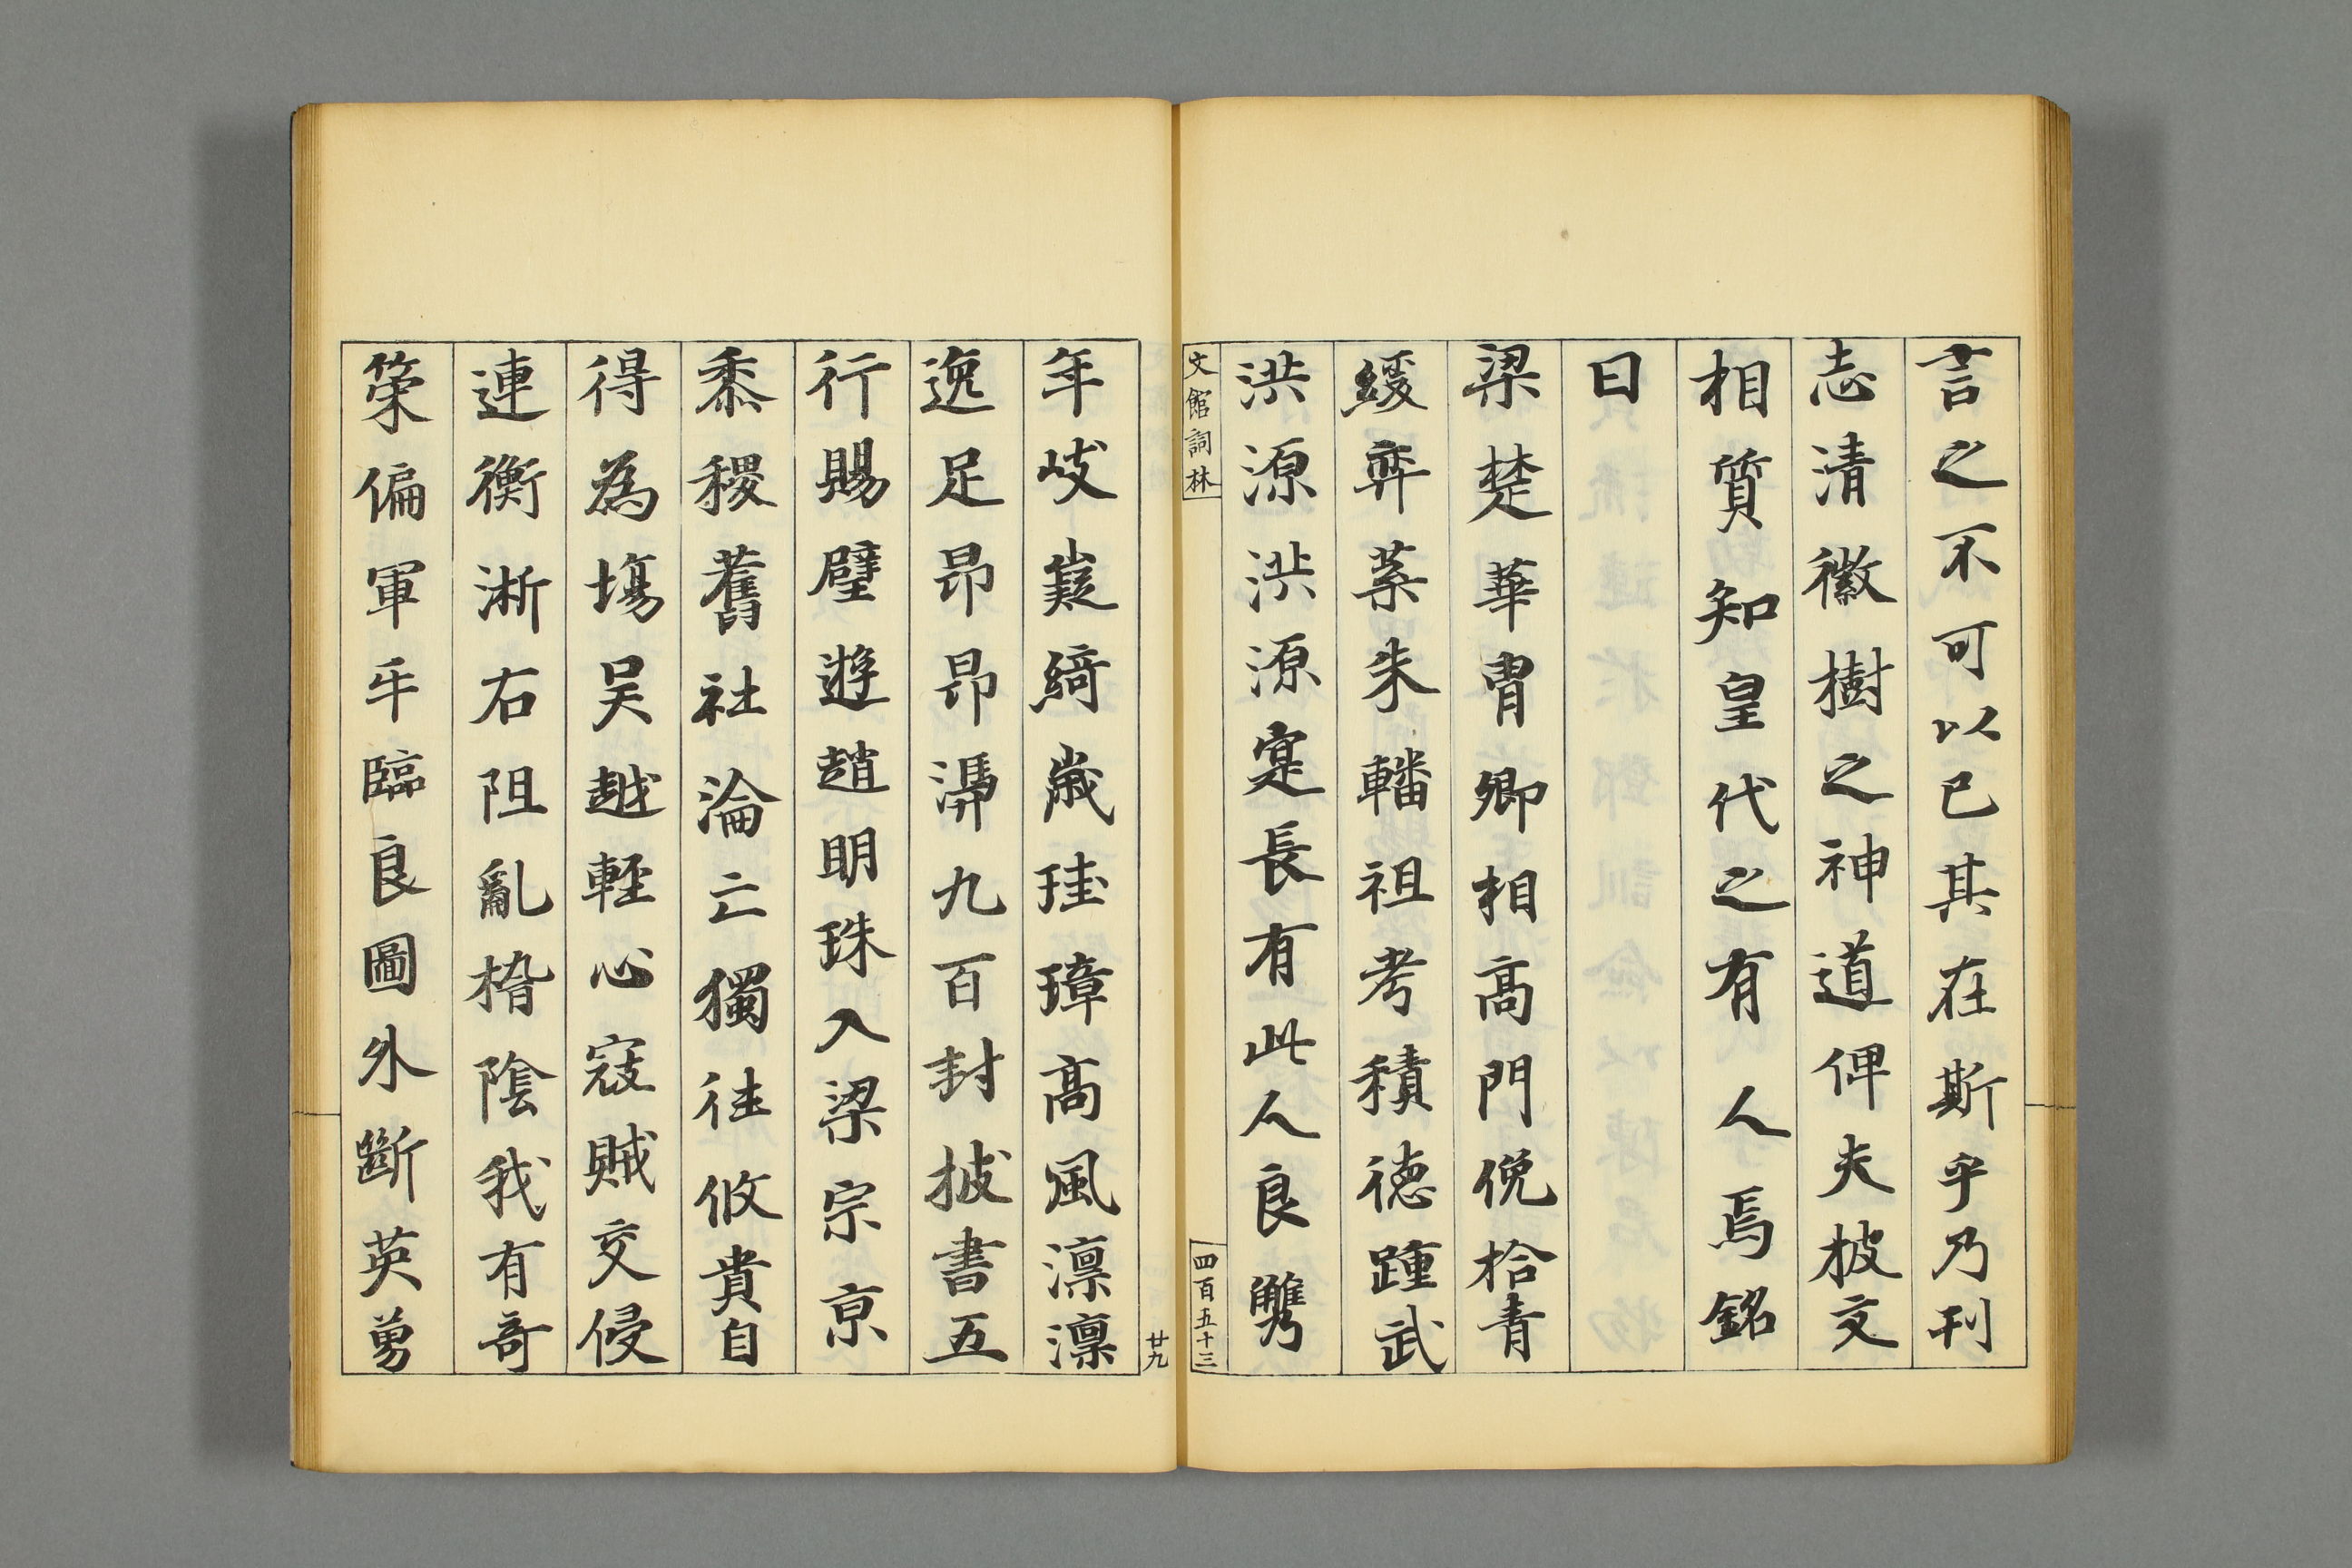 言之不可以已其在斯乎乃刊
志清徽樹之神道俾夫披文
相質知皇代之有人焉銘
曰
梁楚華冑卿相高門俛拾青
緌弈葉朱轓祖考積德踵武
洪源洪源寔長有此人良雋
文館詞林
四百五十三
廿九
年岐嶷綺歲珪璋高風凛凛
逸足昂昂漘九百封披書五
行賜璧遊趙明珠入梁宗京
黍稷舊社淪亡獨往攸貴自
得為塲吴越輕心寇賊交侵
連衡淅右阻亂㮄陰我有奇
策偏軍乎臨良圖外斷英勇